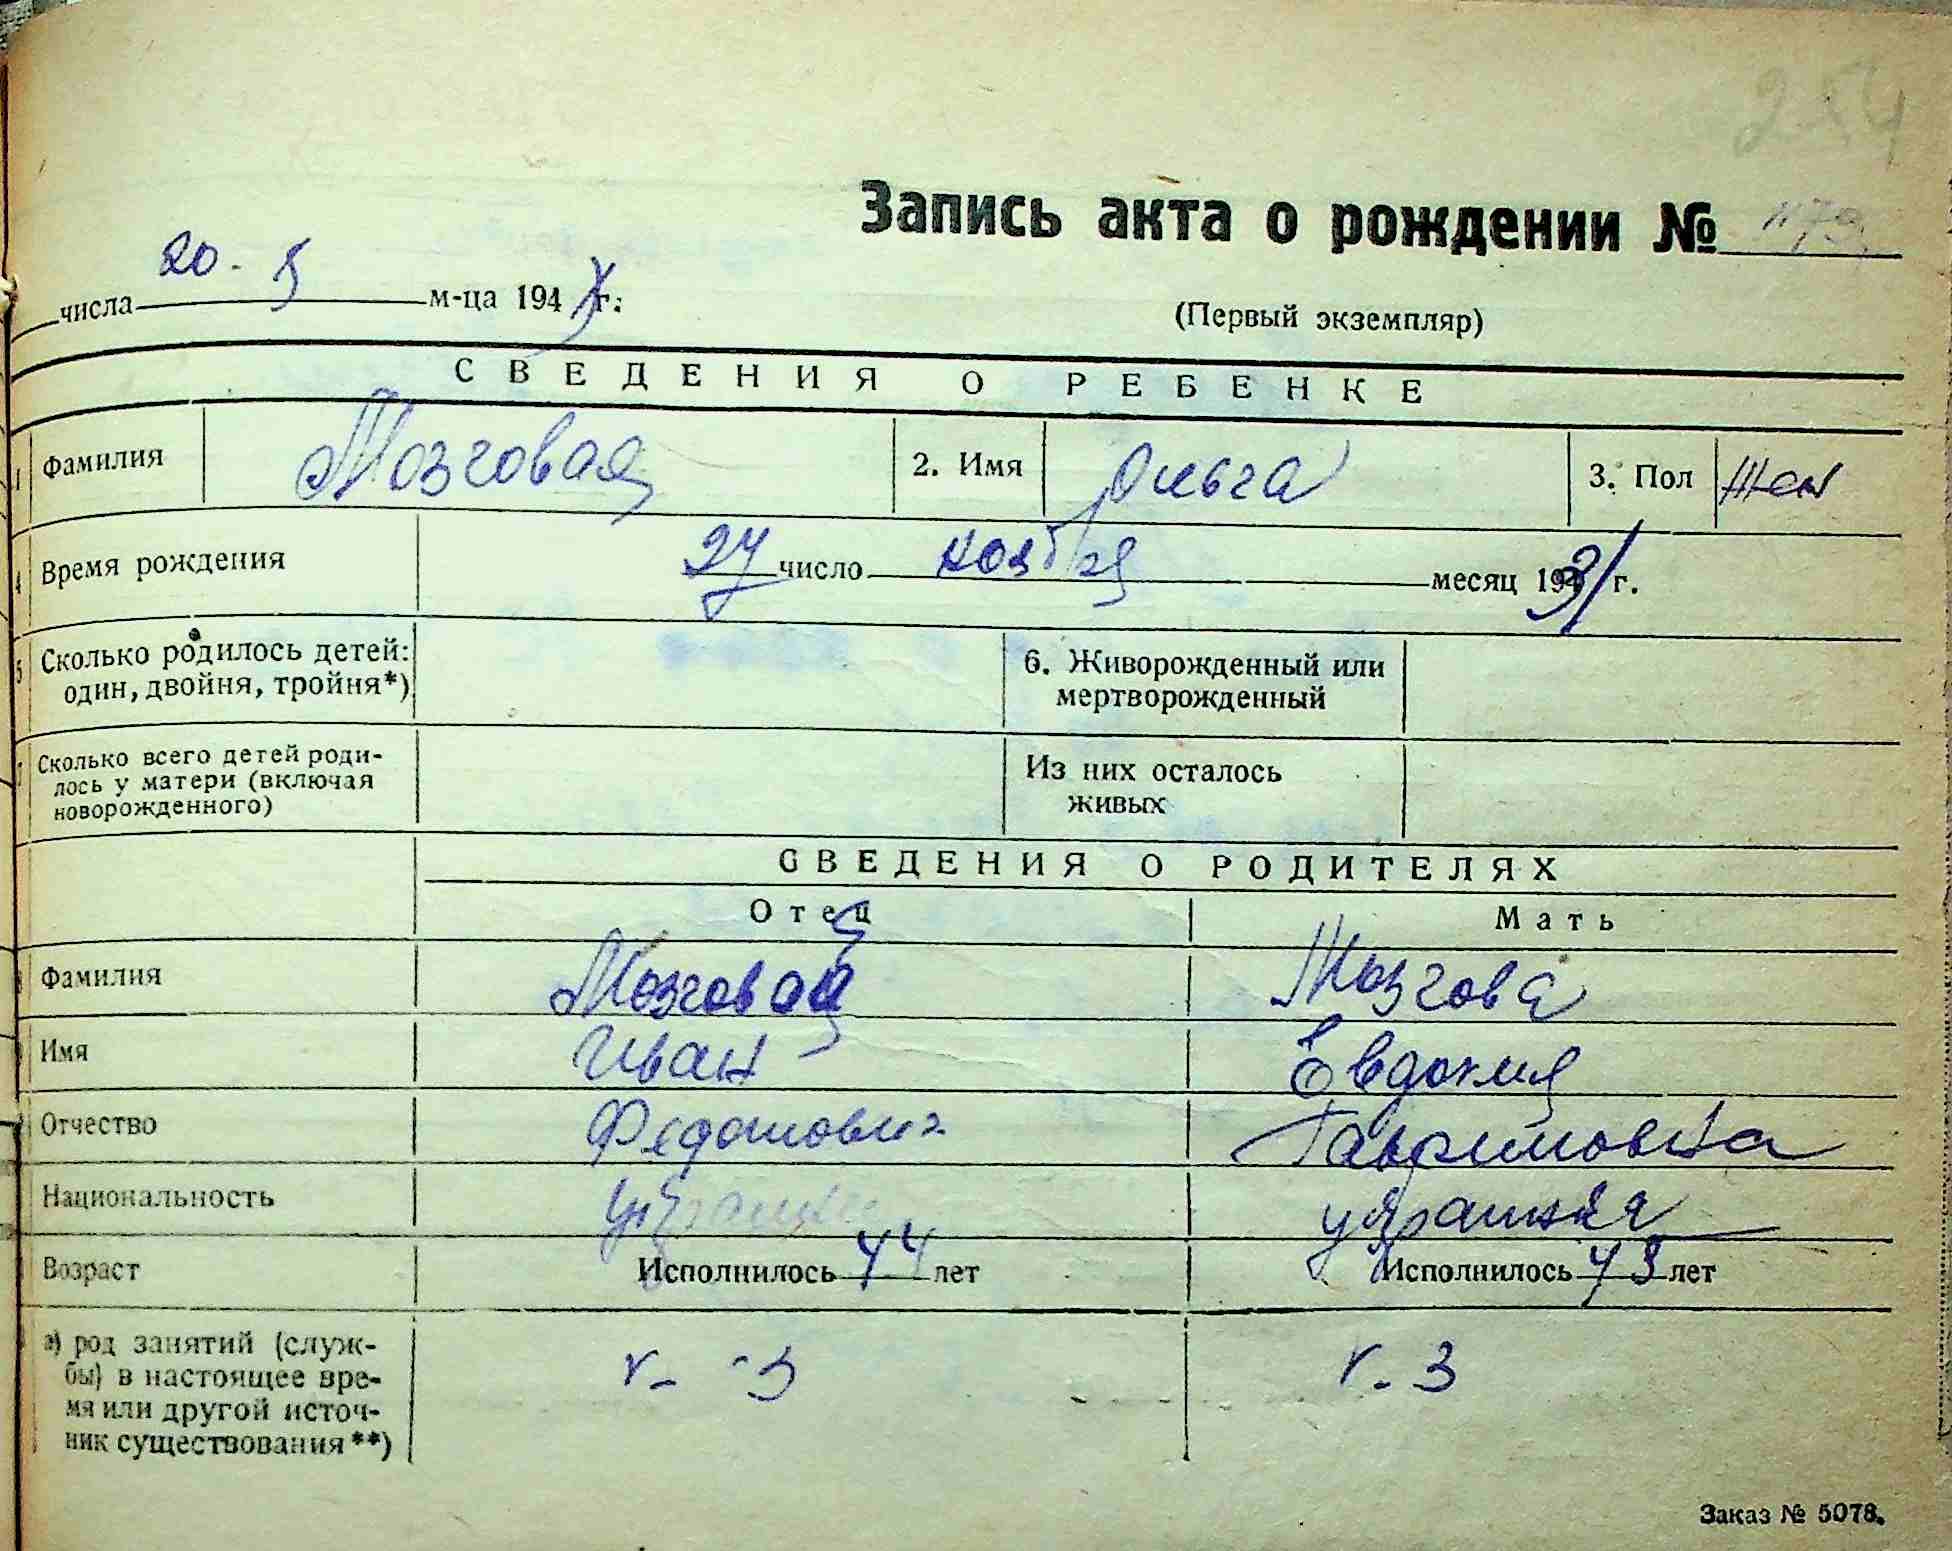 254
Запись акта о рождении №
числа 20. 5 м-ца 194 г.
(Первый экземпляр)
СВЕДЕНИЯ О РЕБЕНКЕ
1 Фамилия Мозговая 2. Имя Ольга 3. Пол жен
4 Время рождения 27 число ноября месяц 1931 г.
5 Сколько родилось детей: 6. Живорожденный или
один, двойня, тройня*) мертворожденный
Сколько всего детей роди- Из них осталось
лось у матери (включая живых
новорожденного)
СВЕДЕНИЯ О РОДИТЕЛЯХ
Отец Мать
Фамилия Мозговой Мозгова
Имя Иван Евдокия
Отчество Федотович Гавриловна
Национальность украинец
Возраст Исполнилось 44 лет Исполнилось 43 лет
а) род занятий (служ-
бы) в настоящее вре-
мя или другой источ-
ник существования**)
к-з к-з
Заказ № 5078.